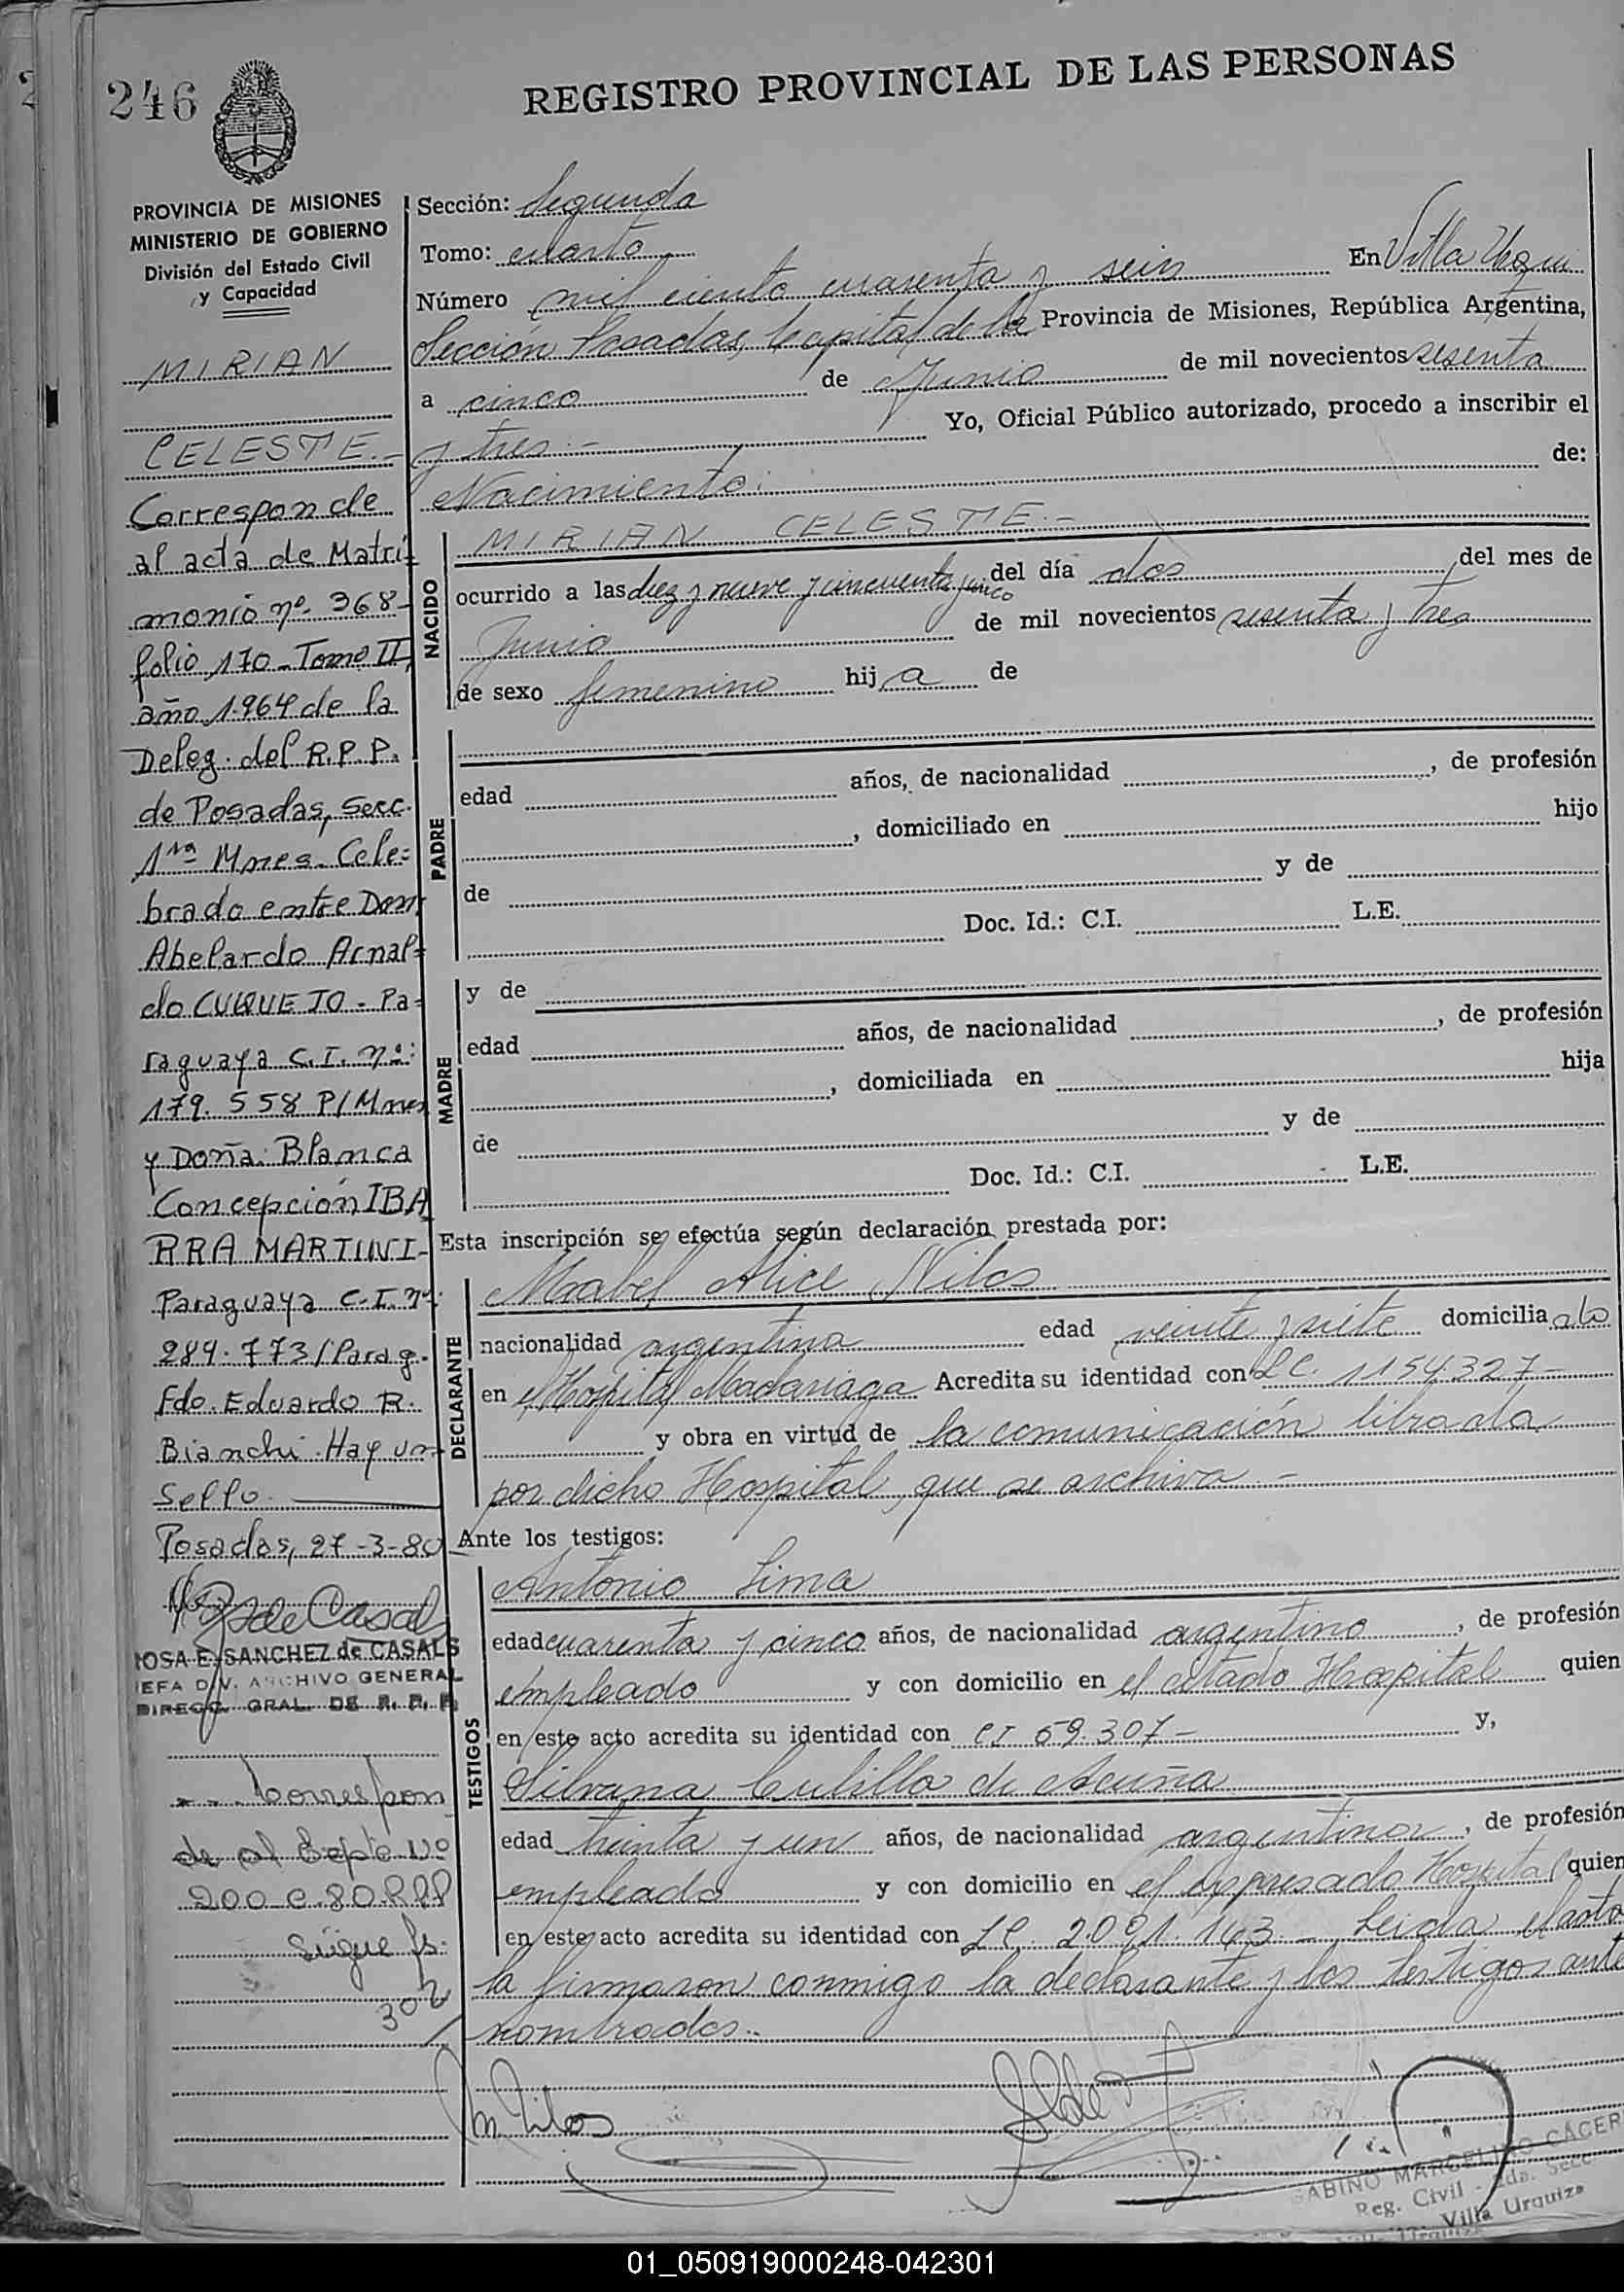 246
REGISTRO PROVINCIAL DE LAS PERSONAS
PROVINCIA DE MISIONES
MINISTERIO DE GOBIERNO
División del Estado Civil
y Capacidad
MIRIAN
CELESTE.-
Corresponde
al acta de Matri=
monio nº 368-
folio 170-Tomo II,
año 1.964 de la
Deleg. del R.P.P.
de Posadas, Secc.
1ra Mnes. Cele=
brado entre Don,
Abelardo Arnal=
do CUQUEJO - Pa=
raguaya C.I. nº:
179.558 P/Mnes
y Doña: Blanca
Concepción IBA
RRA MARTINI-
Paraguaya C.I. nº:
289.773/Parag.
Fdo. Eduardo R.
Bianchi. Hay un
Sello.
Posadas, 27-3-80
ROSA E. SANCHEZ de CASALS
JEFA DIV. ARCHIVO GENERAL
DIRECC. GRAL. DE R. P. P.
--- Correspon
de al Expte Nº
200-C-80-RPP
Sigue fs.
302
Sección: Segunda
Tomo: cuarto
Número mil ciento cuarenta y seis En Villa Urqui
Sección Posadas, Capital de la Provincia de Misiones, República Argentina,
a cinco de Junio de mil novecientos sesenta
y tres.- Yo, Oficial Público autorizado, procedo a inscribir el
Nacimiento: de:
NACIDO
MIRIAN CELESTE.-
ocurrido a las diez y nueve y cincuenta y cinco del día dos del mes de
Junio de mil novecientos sesenta y tres
de sexo femenino hij a de
PADRE
edad años, de nacionalidad , de profesión
, domiciliado en hijo
de y de
Doc. Id.: C.I. L.E.
MADRE
y de
edad años, de nacionalidad , de profesión
, domiciliada en hija
de y de
Doc. Id.: C.I. L.E.
Esta inscripción se efectúa según declaración prestada por:
DECLARANTE
Mabel Alice Nilos
nacionalidad argentina edad veinte y siete domicilia da
en el Hospital Madariaga Acredita su identidad con LC. 1154.327-
y obra en virtud de la comunicación librada
por dicho Hospital, que se archiva.-
Ante los testigos:
TESTIGOS
Antonio Lima
edad cuarenta y cinco años, de nacionalidad argentino , de profesión
empleado y con domicilio en el citado Hospital quien
en este acto acredita su identidad con CI 59.307- y,
Silvana Cubilla de Acuña
edad treinta y un años, de nacionalidad argentina , de profesión
empleada y con domicilio en el expresado Hospital quien
en este acto acredita su identidad con LC. 2.091.143.- Leida el acta
la firmaron conmigo la declarante y los testigos ante
nombrados.-
SABINO MARCELINO CACER
Reg. Civil - 2da. Secc.
Villa Urquiza
01_050919000248-042301